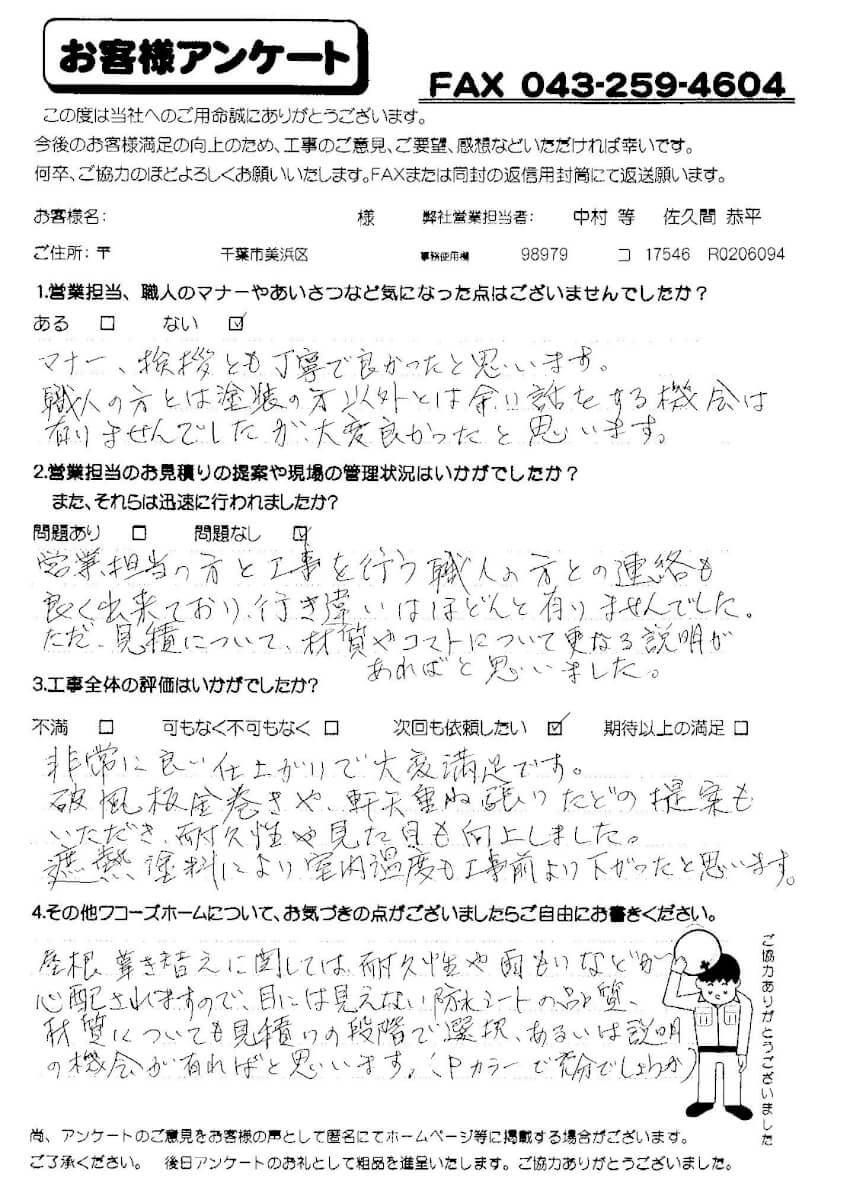 お客様アンケート
FAX 043-259-4604
この度は当社へのご用命誠にありがとうございます。
今後のお客様満足の向上のため、工事のご意見、ご要望、感想などいただければ幸いです。
何卒、ご協力のほどよろしくお願いいたします。FAXまたは同封の返信用封筒にて返送願います。
お客様名: 様 弊社営業担当者: 中村 等 佐久間 恭平
ご住所: 〒 千葉市美浜区 事務使用欄 98979 コ 17546 R0206094
1.営業担当、職人のマナーやあいさつなど気になった点はございませんでしたか?
ある □ ない ☑
マナー、挨拶とも丁寧で良かったと思います。
職人の方とは塗装の方以外とは余り話をする機会は
有りませんでしたが、大変良かったと思います。
2.営業担当のお見積りの提案や現場の管理状況はいかがでしたか?
また、それらは迅速に行われましたか?
問題あり □ 問題なし ☑
営業担当の方と工事を行う職人の方との連絡も
良く出来ており、行き違いはほどんと有りませんでした。
ただ、見積について、材質やコストについて更なる説明が
あればと思いました。
3.工事全体の評価はいかがでしたか?
不満 □ 可もなく不可もなく □ 次回も依頼したい ☑ 期待以上の満足 □
非常に良い仕上がりで大変満足です。
破風板金巻きや、軒天重ね張りなどの提案も
いただき、耐久性や見た目も向上しました。
遮熱塗料により室内温度も工事前より下がったと思います。
4.その他ワコーズホームについて、お気づきの点がございましたらご自由にお書きください。
屋根葺き替えに関しては、耐久性や雨もりなどが
心配されますので、目には見えない防水シートの品質、
材質についても見積りの段階で選択、あるいは説明
の機会が有ればと思います。(Pカラーで充分でしょうか)
ご協力ありがとうございました
尚、アンケートのご意見をお客様の声として匿名にてホームページ等に掲載する場合がございます。
ご了承ください。 後日アンケートのお礼として粗品を進呈いたします。ご協力ありがとうございました。